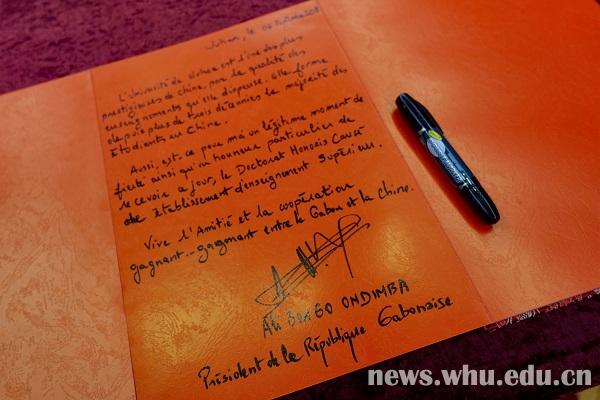 Wuhan, le 06 Septembre 2018
L'Université de Wuhan est l'une des plus
prestigieuses de Chine, par la qualité des
enseignements qu'elle dispense. Elle forme
depuis plus de trois décennies la majorité des
Etudiants en Chine.
Aussi, est-ce pour moi un légitime moment de
fierté ainsi qu'un honneur particulier de
recevoir ce jour, le Doctorat Honoris Causa
de Etablissement d'enseignement Supérieur.
Vive l'Amitié et la coopération
gagnant-gagnant entre le Gabon et la Chine.
Ali BONGO ONDIMBA
Président de la République Gabonaise
news.whu.edu.cn